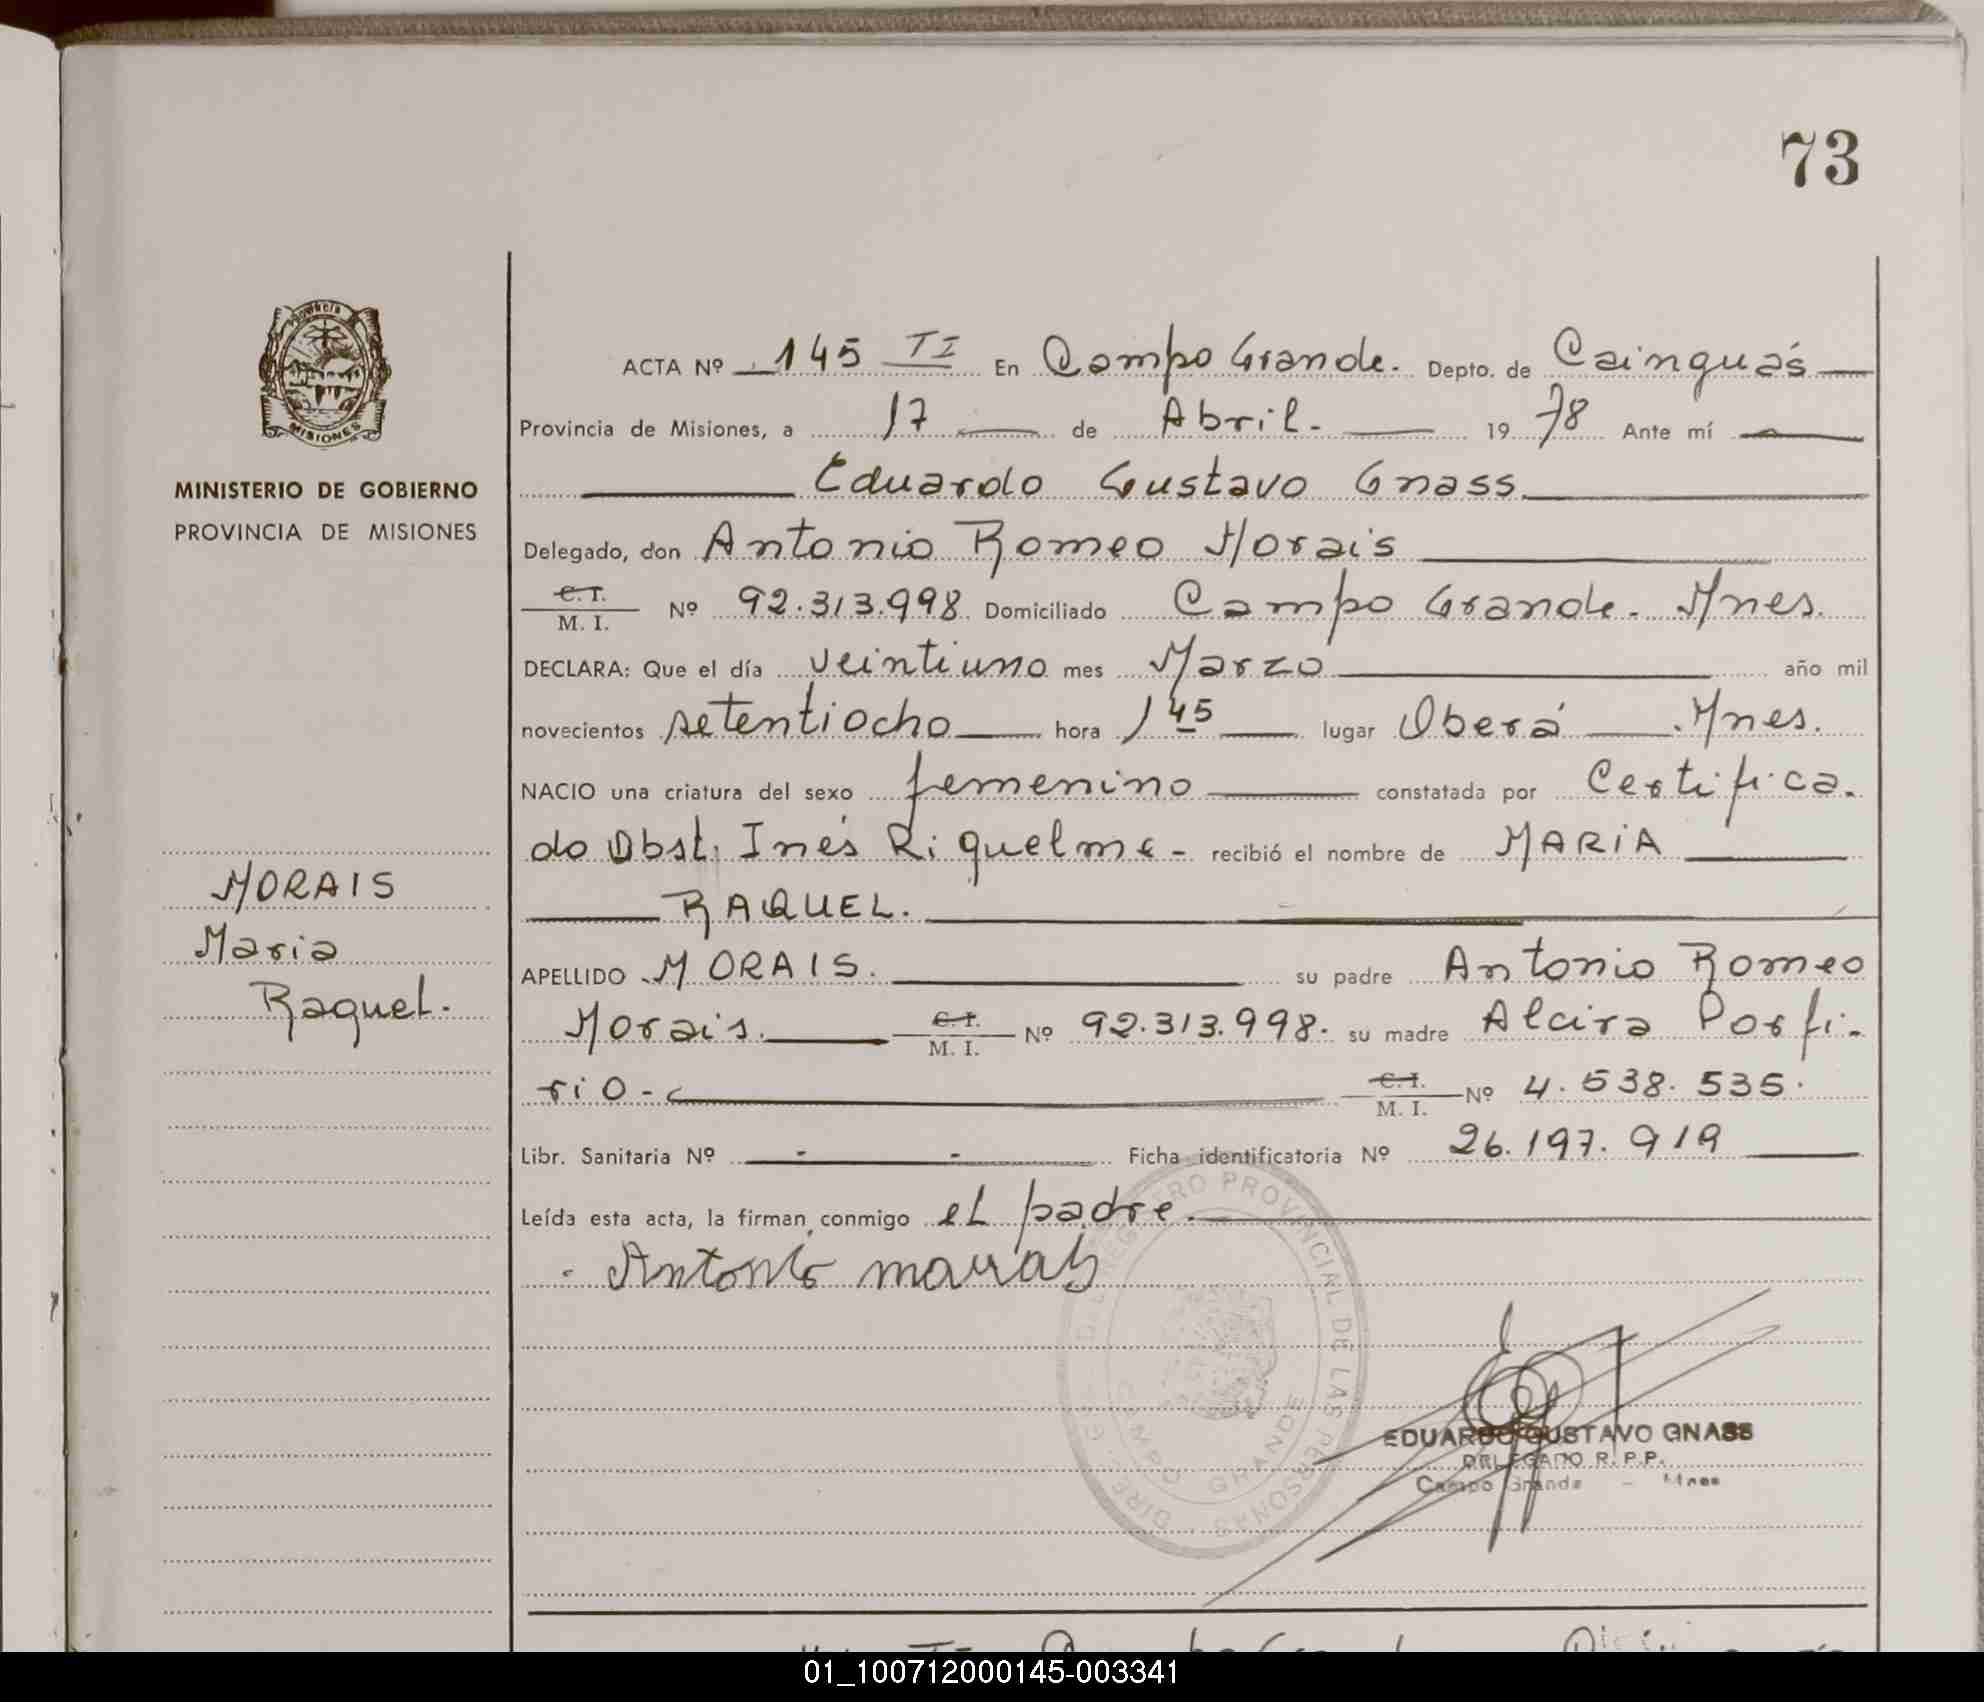 73
Provincia
MISIONES
MINISTERIO DE GOBIERNO
PROVINCIA DE MISIONES
MORAIS
Maria
Raquel.
ACTA Nº 145 TI En Campo Grande. Depto. de Cainguás
Provincia de Misiones, a 17 de Abril. 1978 Ante mí
Eduardo Gustavo Gnass
Delegado, don Antonio Romeo Morais
C.I.
M. I. Nº 92.313.998 Domiciliado Campo Grande. Mnes.
DECLARA: Que el día veintiuno mes Marzo año mil
novecientos setentiocho hora 1 45 lugar Oberá Mnes.
NACIO una criatura del sexo femenino constatada por Certifica-
do Obst. Inés Riquelme - recibió el nombre de MARIA
RAQUEL.
APELLIDO MORAIS. su padre Antonio Romeo
Morais. C.I. M. I. Nº 92.313.998. su madre Alcira Porfi-
rio - C.I. M. I. Nº 4.538.535.
Libr. Sanitaria Nº - - Ficha identificatoria Nº 26.197.919
Leída esta acta, la firman conmigo el padre.
Antonio
REGISTRO PROVINCIAL DE LAS PERSONAS
CAMPO GRANDE
EDUARDO GUSTAVO GNASS
DELEGADO R. P. P.
Campo Grande - Mnes
01_100712000145-003341